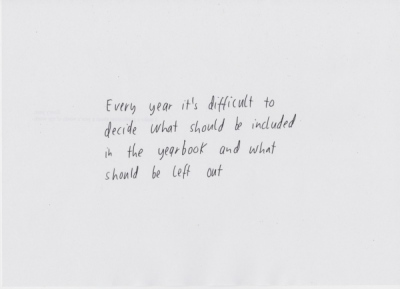 Every year it's difficult to
decide what should be included
in the yearbook and what
should be left out